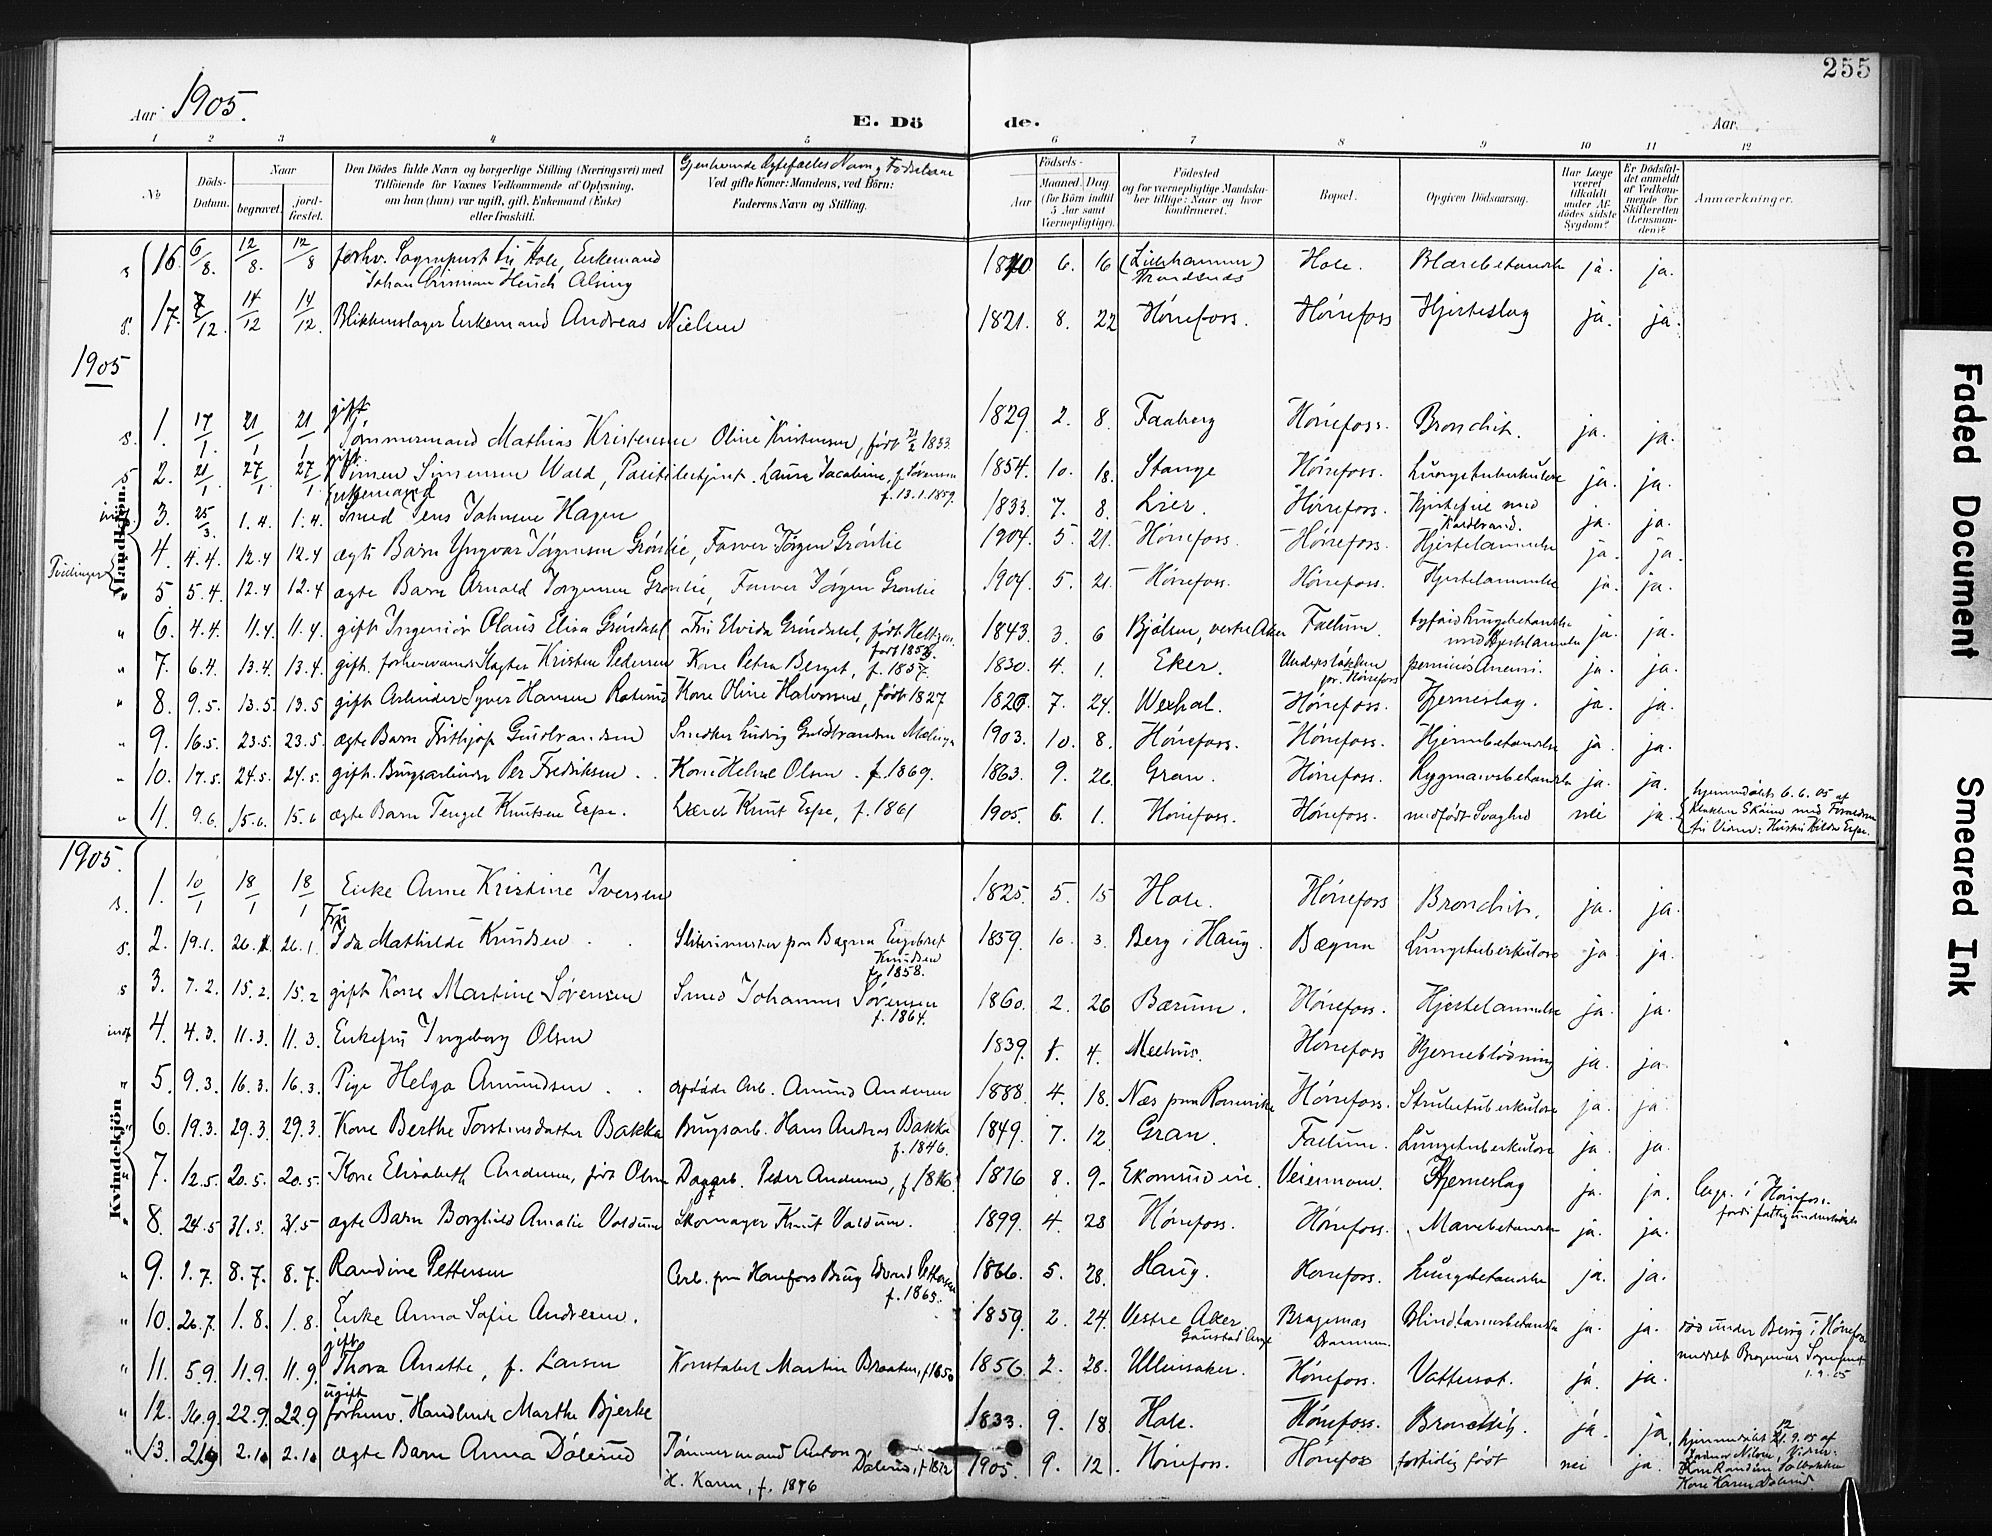 255
Aar 1905.
E. Döde.
Aar
1 2 3 4 5 6 7 8 9 10 11 12
No
Döds-Datum.
Naar
begravet.
jord-fæstet.
Den Dödes fulde Navn og borgerlige Stilling (Næringsvei) med Tilföiende for Voxnes Vedkommende af Oplysning, om han (hun) var ugift, gift, Enkemand (Enke) eller fraskilt.
Gjenlevende Ægtefælles Navn og Fødselsaar
Ved gifte Koner: Mandens, ved Börn: Faderens Navn og Stilling.
Födsels-
Aar
Maaned. Dag
(for Börn indtil 5 Aar samt Værnepligtige).
Födested og for værnepligtige Mandskaber tillige: Naar og hvor konfirmeret.
Bopæl.
Opgiven Dödsaarsag.
Har Læge været tilkaldt under Afdödes sidste Sygdom?
Er Dödsfaldet anmeldt af Vedkommende for Skifteretten (Lensmanden)?
Anmærkninger.
s 16. 6/8. 12/8. 12/8 forhv. Sogneprest til Hole, Enkemand Johan Alsing 1840 6. 16 (Lillehammer) Hole. Blærebetændelse ja. ja.
s. 17. 7/12. 14/12 14/12. Blikkenslager Enkemand Andreas Nielsen 1821. 8. 22 Hønefoss. Hønefoss Hjerteslag ja. ja.
1905
Mandskjøn
s. 1. 17/1. 21/1 21/1 gift Tømmermand Mathias Kristensen Oline Kristensen, født 2/2 1833. 1829. 2. 8. Faaberg Hønefoss. Bronchit. ja. ja.
s 2. 21/1. 27/1 27/1 gift Simen Simensen Wold, Politibetjent. Laura Jacobine, f. Sørensen f. 13.1.1859. 1854. 10. 18. Stange Hønefoss. Lungetuberkulose ja. ja.
indf. 3. 25/3. 1.4. 1.4. Enkemand Smed Jens Johnsen Hagen 1833. 7. 8. Lier. Hønefoss. Hjertefeil med Koldbrand. ja. ja.
Tvillinger
4. 4.4. 12.4 12.4 ægte Barn Yngvar Jørgensen Grønlie, Farver Jørgen Grønlie 1904. 5. 21. Hønefoss. Hønefoss. Hjertelammelse ja. ja.
" 5. 5.4. 12.4 12.4 ægte Barn Arnold Jørgensen Grønlie, Farver Jørgen Grønlie 1904 5. 21. Hønefoss. Hønefoss. Hjertelammelse ja. ja.
" 6. 4.4. 11.4. 11.4. gift Ingeniør Olaus Elisa Grøndahl Fru Elvida Grøndahl, født Heltzen. født 1858. 1843. 3. 6 Bjølsen, vestre Aker Follum. tyfoid Lungebetændelse med Hjertelammelse ja. ja.
" 7. 6.4. 13.4. 13.4. gift. forhenværende Slagter Kristen Pedersen Kone Petra Berget, f. 1837. 1830. 4. 1. Eker. Hønefoss perniciøs Anemi. ja. ja.
" 8. 9.5. 13.5. 13.5 gift Arbeider Syver Hansen Kone Oline Halvorsen, født 1827 1820. 7. 24. Hønefoss. Hjerneslag. ja. ja.
" 9. 16.5. 23.5. 23.5. ægte Barn Frithjof Guldbrandsen Ludvig Guldbrandsen 1903. 10. 8. Hønefoss. Hønefoss. Hjernebetændelse ja. ja.
" 10. 17.5. 24.5. 24.5. gift. Brugsarbeider Per Fredriksen . . Kone Helene Olsen . f. 1869. 1863. 9. 26. Gran. Hønefoss. Rygmarvsbetændelse ja. ja.
" 11. 9.6. 15.6. 15.6 ægte Barn Tengel Knutsen Espe. Lærer Knut Espe, f. 1861 1905. 6. 1. Hønefoss. Hønefoss. medfødt Svaghed nei ja. hjemmedøbt 6.6.05 af
1905.
Kvindekjøn
s. 1. 10/1 18/1 18/1 Enke Anne Kristine Iversen 1825. 5. 15 Hole. Hønefoss Bronchit. ja. ja.
s. 2. 19.1. 26.1. 26.1. Fru Ida Mathilde Knudsen . . Sliperimester paa Bægna Engebret Knudsen f. 1858. 1859. 10. 3. Berg i Haug. Bægna Lungetuberkulose ja. ja.
s 3. 7.2. 15.2. 15.2 gift Kone Martine Sørensen Smed Johannes Sørensen f. 1864. 1860. 2. 26 Bærum. Hønefoss. Hjertelammelse ja. ja.
indf 4. 4.3. 11.3. 11.3. Enkefru Ingeborg Olsen 1839. 1. 4. Melhus. Hønefoss Hjerneblødning ja. ja.
" 5. 9.3. 16.3. 16.3. Pige Helga Amundsen . . afdøde Arb. Amund Andersen 1888. 4. 18. Næs paa Romerike Hønefoss. Strubetuberkulose ja. ja.
" 6. 19.3. 29.3. 29.3. Kone Berthe Torstensdatter Bakka Brugsarb. Hans Andreas Bakka f. 1846. 1849. 7. 12. Gran. Follum. Lungetuberkulose ja. ja.
" 7. 12.5. 20.5. 20.5. Kone Elisabeth Andersen, født Olsen Dagarb. Peder Andersen, f. 1816. 1816 8. 9. Veiermoen. Hjerneslag ja. ja. i Hønefoss
" 8. 24.5 31.5. 31.5 ægte Barn Borghild Amalie Valdum Skomager Knut Valdum. 1899. 4. 28 Hønefoss. Hønefoss. Mavebetændelse ja. ja.
" 9. 1.7. 8.7. 8.7. Randine Pettersen Arb. paa Hønefos Brug Edvard Pettersen f. 1865. 1866. 5. 28. Haug. Hønefoss. Lungebetændelse ja. ja.
" 10. 26.7. 1.8. 1.8. Enke Anna Sofie Andresen. 1859. 2. 24. Vestre Aker Gaustad Bragernæs Drammen. Blindtarmsbetændelse ja. ja. død under Besøg i Hønefos
" 11. 5.9. 11.9. 11.9. gift Thora Anette, f. Larsen Konstabel Martin Braaten, f. 1850 1856. 2. 28. Ullensaker. Hønefoss. Vattersot. ja. ja. 1.9.05
" 12. 16.9. 22.9. 22.9 ugift forhenv. Handlende Marthe Bjerke 1833. 9. 18. Hole. Hønefoss. Bronchit. ja. ja.
" 13. 21.9 2.10 2.10. ægte Barn Anna Dølerud Tømmermand Anton Dølerud, f. 1872 H. Karen, f. 1876 1905. 9. 12. Hønefoss. Hønefoss fortidlig født nei ja. hjemmedøbt 12.9.05 af Kone Karen Dølerud
Faded Document
Smeared Ink